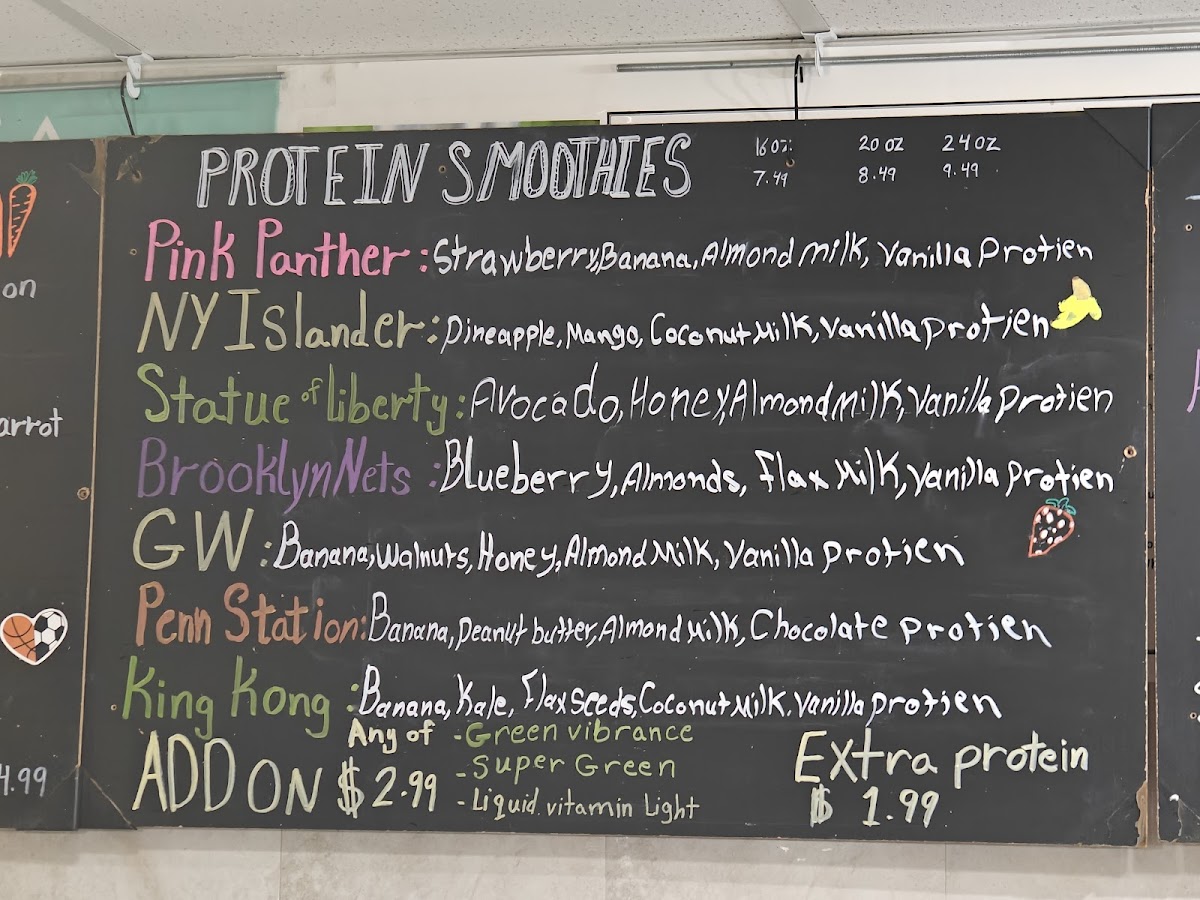 PROTEIN SMOOTHIES
16 oz: 20 OZ 24 OZ
7.49 8.49 9.49
Pink Panther: Strawberry, Banana, Almond Milk, Vanilla Protien
NY Islander: Pineapple, Mango, Coconut Milk, Vanilla Protien
Statue of liberty: Avocado, Honey, Almond Milk, Vanilla Protien
Brooklyn Nets: Blueberry, Almonds, Flax Milk, Vanilla Protien
GW: Banana, Walnuts, Honey, Almond Milk, Vanilla Protien
Penn Station: Banana, Peanut butter, Almond Milk, Chocolate Protien
King Kong: Banana, Kale, Flax Seeds, Coconut Milk, Vanilla Protien
ADD ON $2.99
Any of - Green vibrance
- Super Green
- Liquid vitamin Light
Extra protein
$ 1.99
on
arrot
4.99